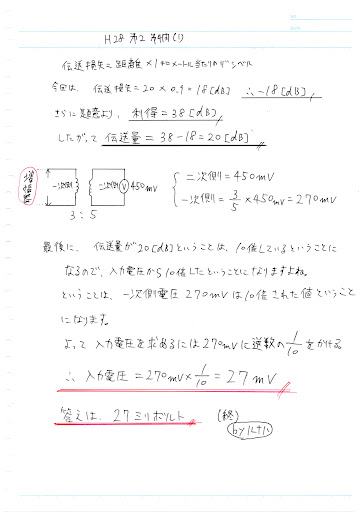 H28 第2 第4問(1)
伝送損失=距離×1キロメートル当たりのデシベル
今回は、伝送損失=20×0.9=18[dB] ∴-18[dB]
さらに題意より、利得=38[dB]
したがって 伝送量=38-18=20[dB]
増幅器
一次側 二次側 V 450mV
3:5
二次側=450mV
一次側=3/5×450mV=270mV
最後に、伝送量が20[dB]ということは、10倍しているということに
なるので、入力電圧から10倍したということになりますよね。
ということは、一次側電圧270mVは10倍された値ということ
になります。
よって入力電圧を求めるには270mVに逆数の1/10をかける
∴入力電圧=270mV×1/10=27mV
答えは、27ミリボルト (終)
by